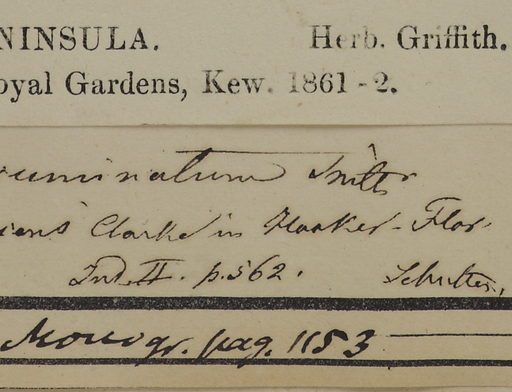 NINSULA. Herb. Griffith.
oyal Gardens, Kew. 1861-2.
uminatum Smith
Clarke in Hooker Flor
Ind. II. p. 562.
Monogr. pag. 1153